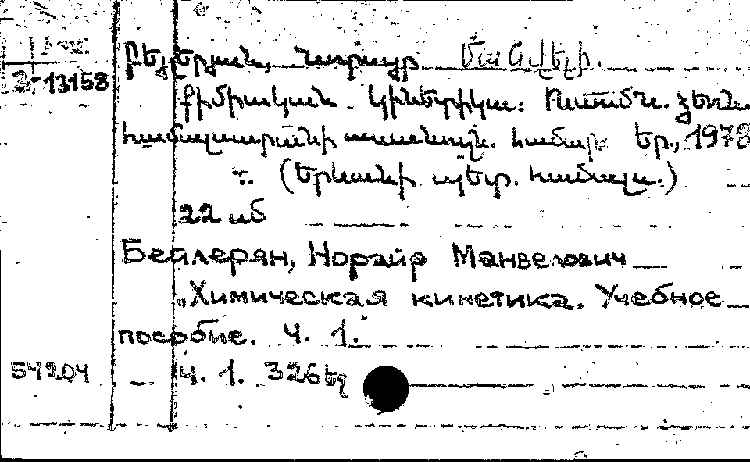 Բեյլերյան, Նորայր Մանվելի.
2-13153
Քիմիական կինետիկա: Ուսումն. ձեռն.
համալսարանի ուսանող. համար Եր., 1978
տ. (Երևանի պետ. համալս.)
22 սմ
Бейлерян, Норайр Манвелович
Химическая кинетика. Учебное
пособие. Ч. 1.
54204 Ч. 1. 326 եզ